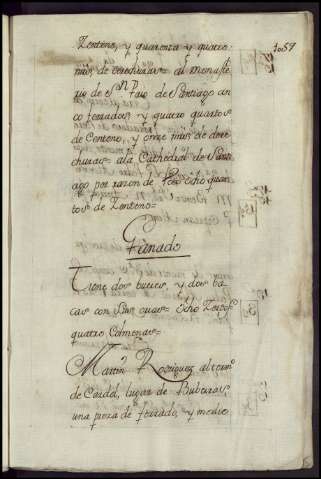 1059
Zenteno, y quarenta y quatro
mrs de derechuras= al monaste
rio de Sn Paio de Santiago cin
co ferrados, y quatro quartos
de Centeno, y onze mrs de dere
churas= ala Cathedral de Sant
ago por razon de Voto ocho quar
tos de Zenteno=
Ganado
Tiene dos bueies, y dos ba
cas con sus cuas= ocho
quatro Colmenas=
Martin Rodriguez al term
de Cardd, lugar de
una pieza de ferrado, y medio